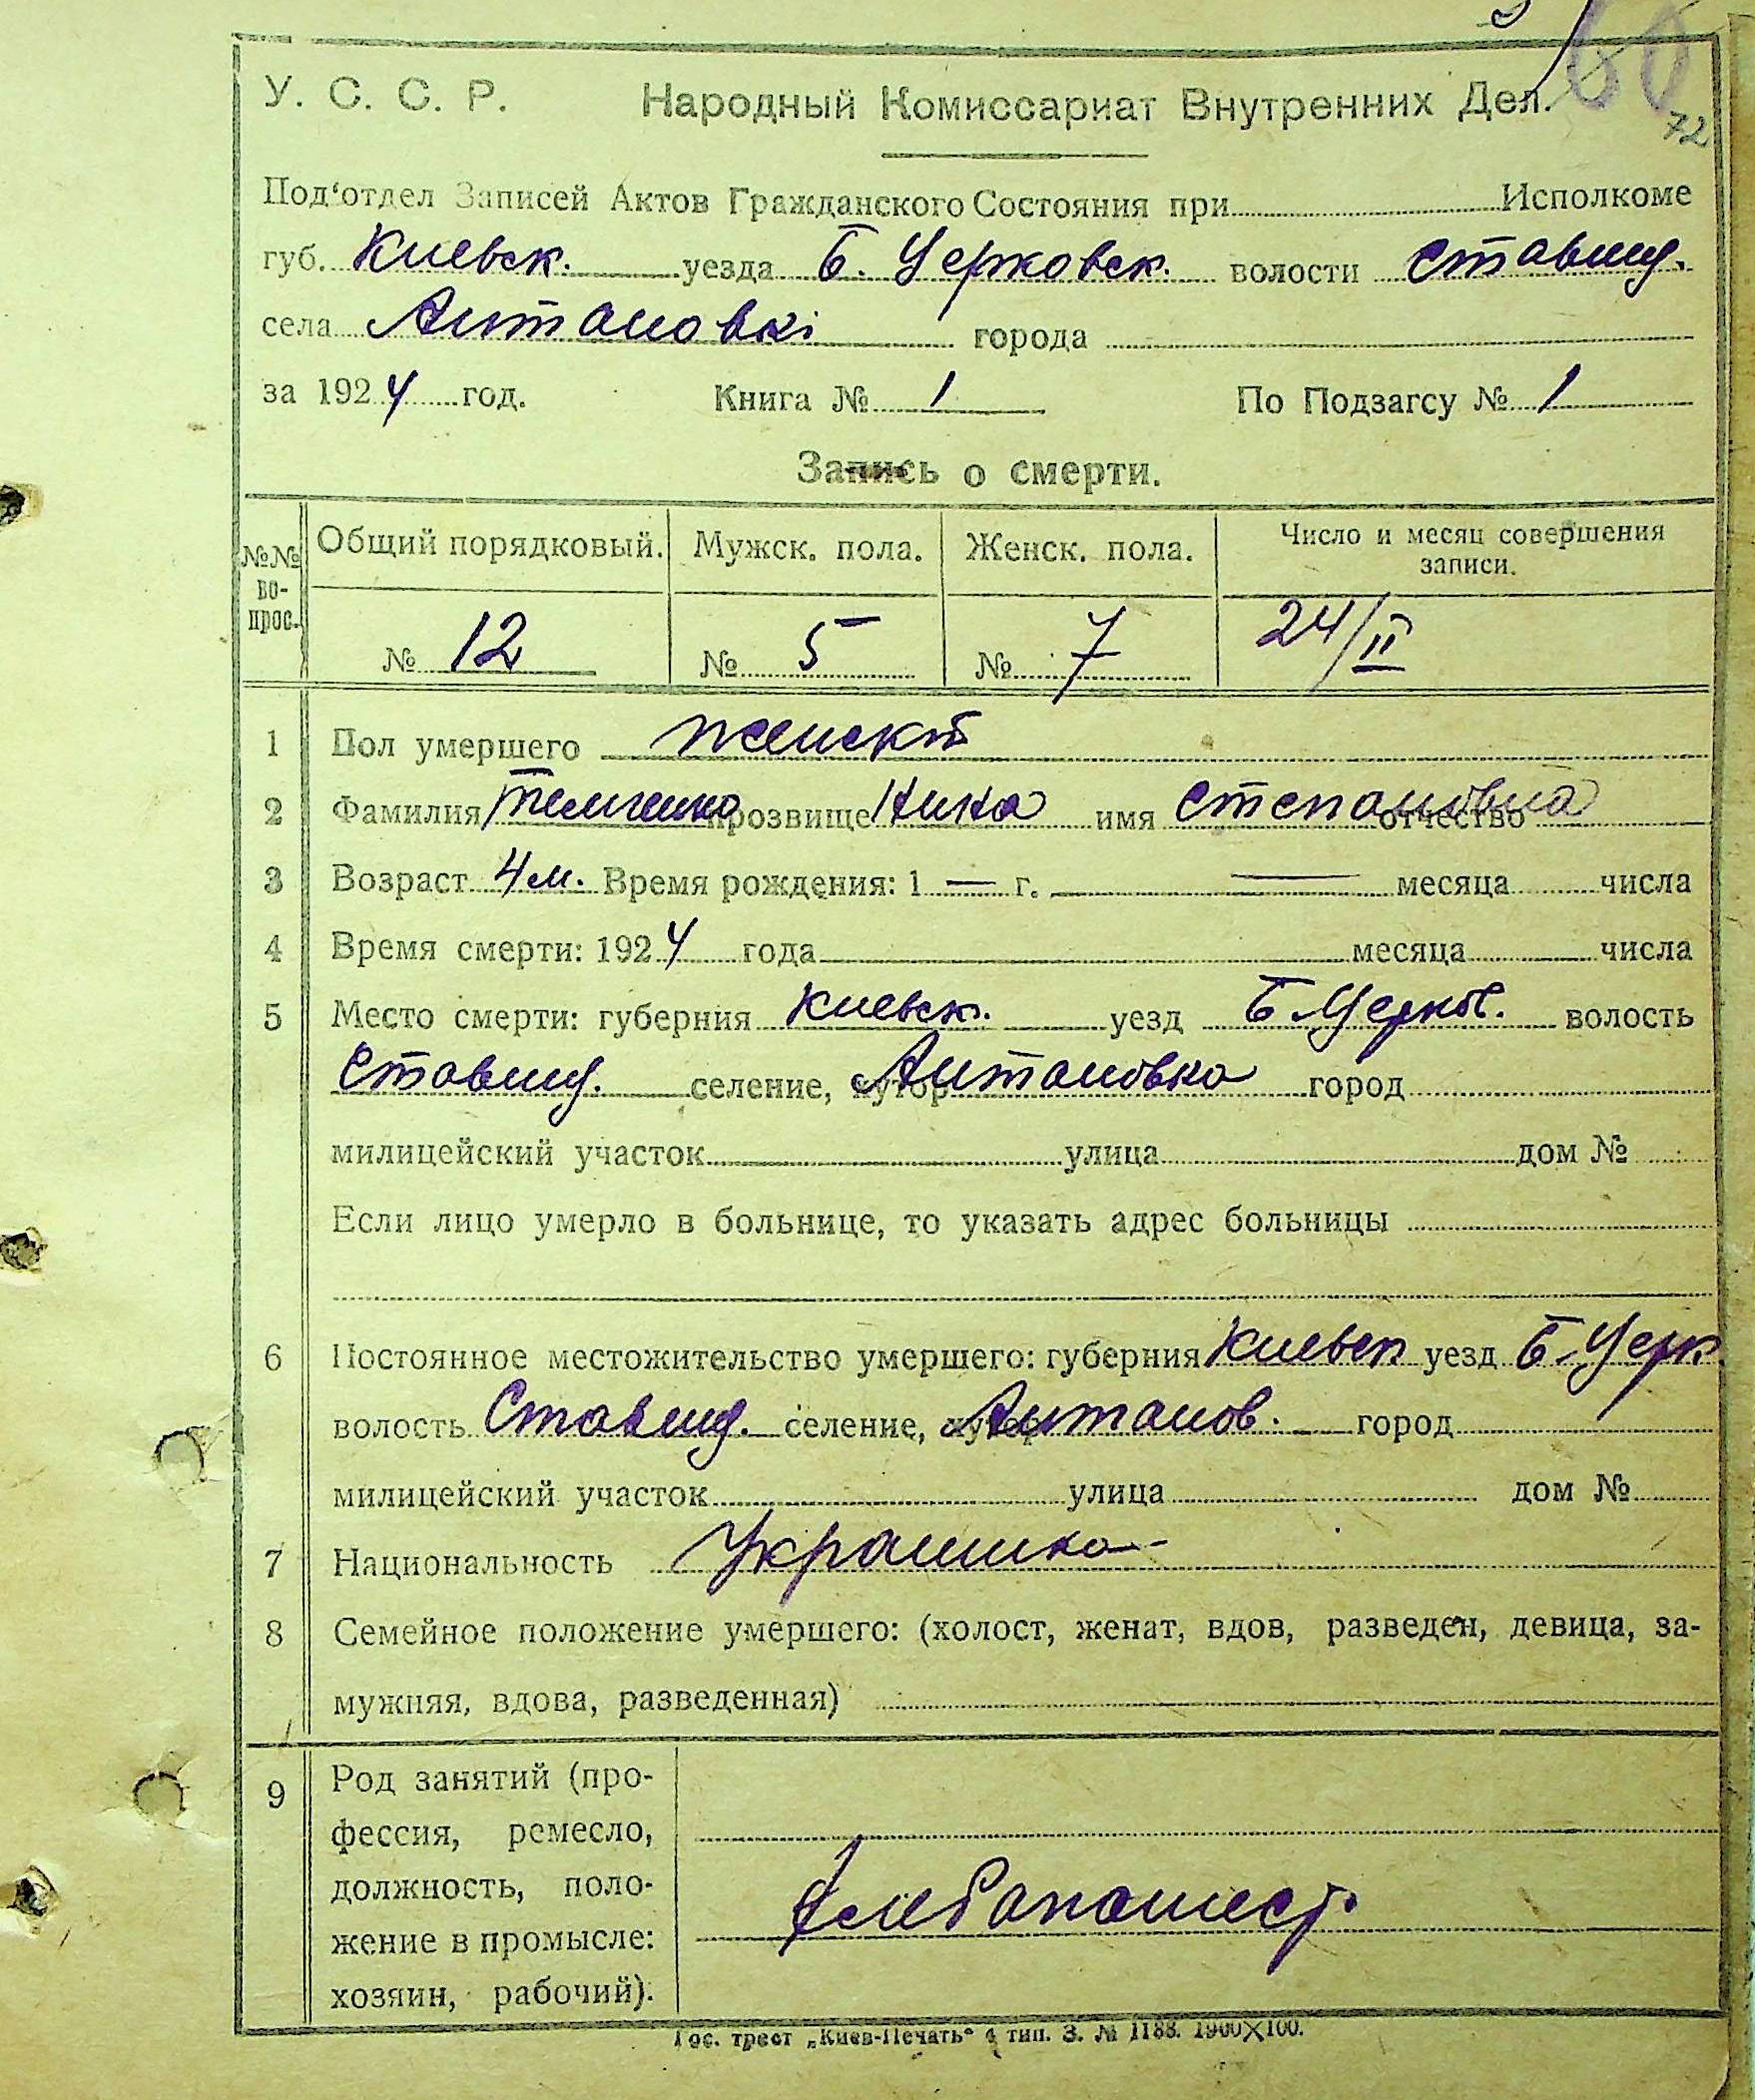 72
У. С. С. Р. Народный Комиссариат Внутренних Дел.
Под‘отдел Записей Актов Гражданского Состояния при Исполкоме
губ. Киевск. уезда Б. Церковск. волости Ставищ.
села Антановкі города
за 1924 год. Книга № 1 По Подзагсу № 1
Запись о смерти.
№№ во-прос. Общий порядковый. Мужск. пола. Женск. пола. Число и месяц совершения записи.
№ 12 № 5 № 7 24/II
1 Пол умершего женский
2 Фамилия прозвище Нина имя Степановна отчество
3 Возраст 4 м. Время рождения: 1 — г. — месяца числа
4 Время смерти: 1924 года месяца числа
5 Место смерти: губерния Киевск. уезд Б Церков. волость
Ставищ. селение, хутор Антановка город
милицейский участок улица дом №
Если лицо умерло в больнице, то указать адрес больницы
6 Постоянное местожительство умершего: губерния Киевск уезд Б. Церк
волость Ставищ. селение, хутор Антанов. город
милицейский участок улица дом №
7 Национальность Украинка
8 Семейное положение умершего: (холост, женат, вдов, разведен, девица, за-
мужняя, вдова, разведенная)
9 Род занятий (про-
фессия, ремесло,
должность, поло-
жение в промысле:
хозяин, рабочий).
Хлебапашест.
Гос. трест „Киев-Печать“ 4 тип. З. № 1188. 1900×100.